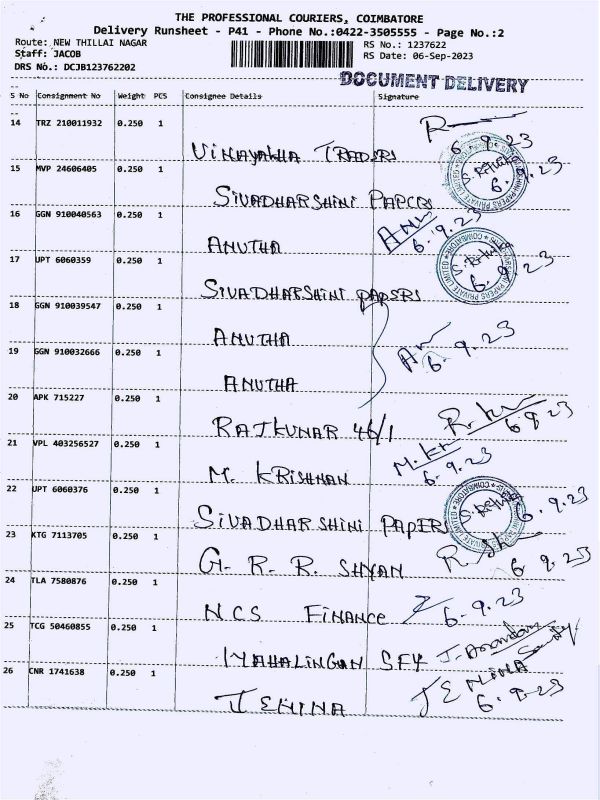 THE PROFESSIONAL COURIERS, COIMBATORE
Delivery Runsheet - P41 - Phone No.:0422-3505555 - Page No.:2
Route: NEW THILLAI NAGAR RS No.: 1237622
Staff: JACOB RS Date: 06-Sep-2023
DRS No.: DCJB123762202
DOCUMENT DELIVERY
S No Consignment No Weight PCS Consignee Details Signature
14 TRZ 210011932 0.250 1
VINAYAKHA TRADERS 6.9.23
15 MVP 24606405 0.250 1
SIVADHARSHINI PAPERS 6.9.23
16 GGN 910040563 0.250 1
ANUTHA 6.9.23
17 UPT 6060359 0.250 1
SIVADHARSHINI PAPERS 6.9.23
18 GGN 910039547 0.250 1
ANUTHA
19 GGN 910032666 0.250 1
ANUTHA 6.9.23
20 APK 715227 0.250 1
RAJKUNAR 46/1 6.9.23
21 VPL 403256527 0.250 1
M. KRISHNAN 6.9.23
22 UPT 6060376 0.250 1
SIVADHARSHINI PAPERS 6.9.23
23 KTG 7113705 0.250 1
G.R.R. SHYAN 6.9.23
24 TLA 7580876 0.250 1
NCS FINANCE 6.9.23
25 TCG 50460855 0.250 1
MAHALINGAN
26 CNR 1741638 0.250 1
JENINA JENINA 6.9.23